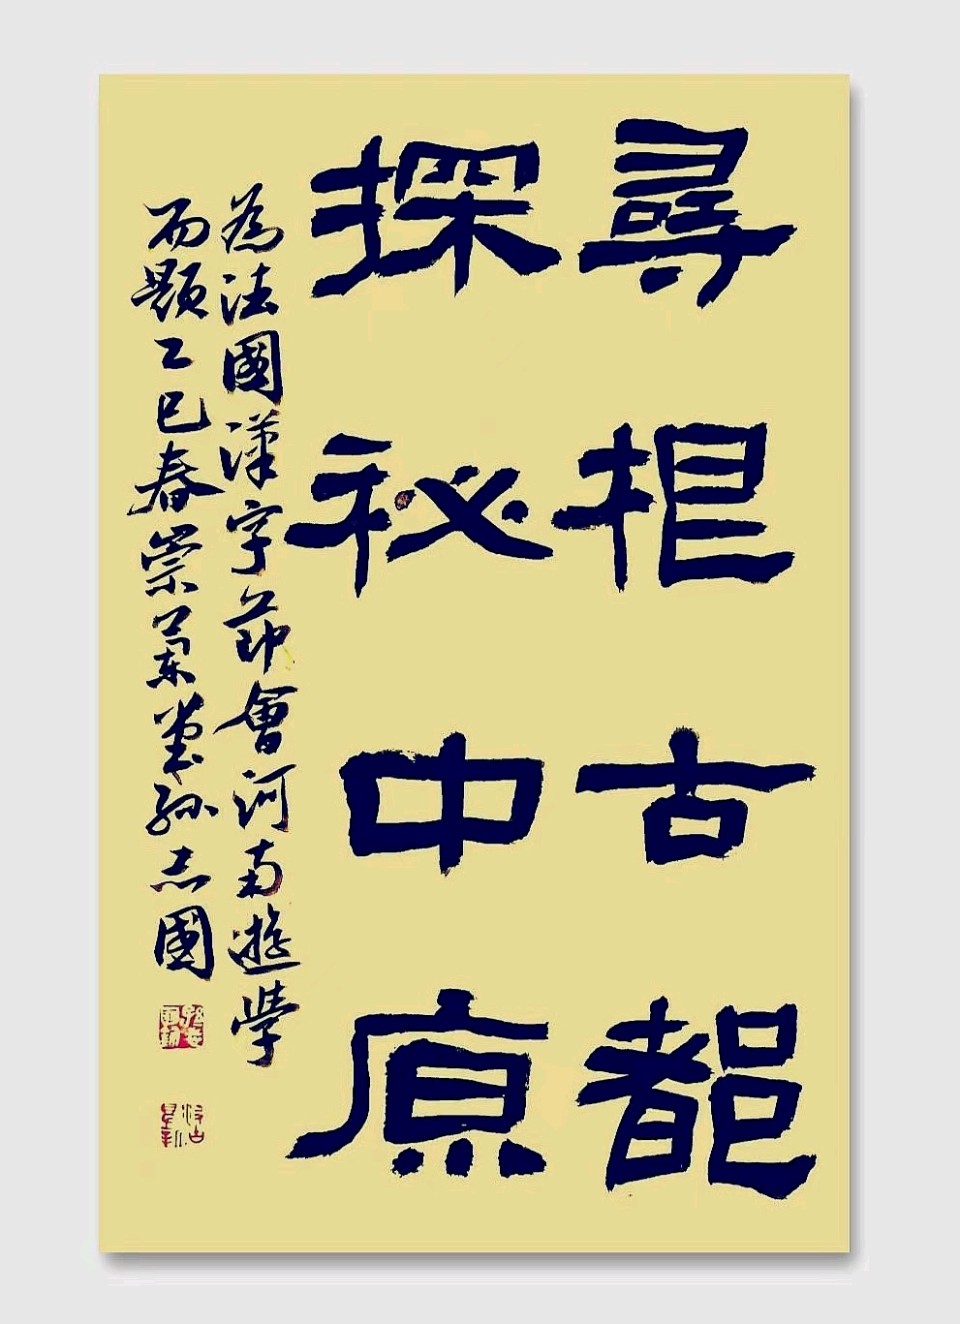 尋根古都
探秘中原
為法國漢字節會河南遊學
而題乙巳春崇蘭堂孫志國